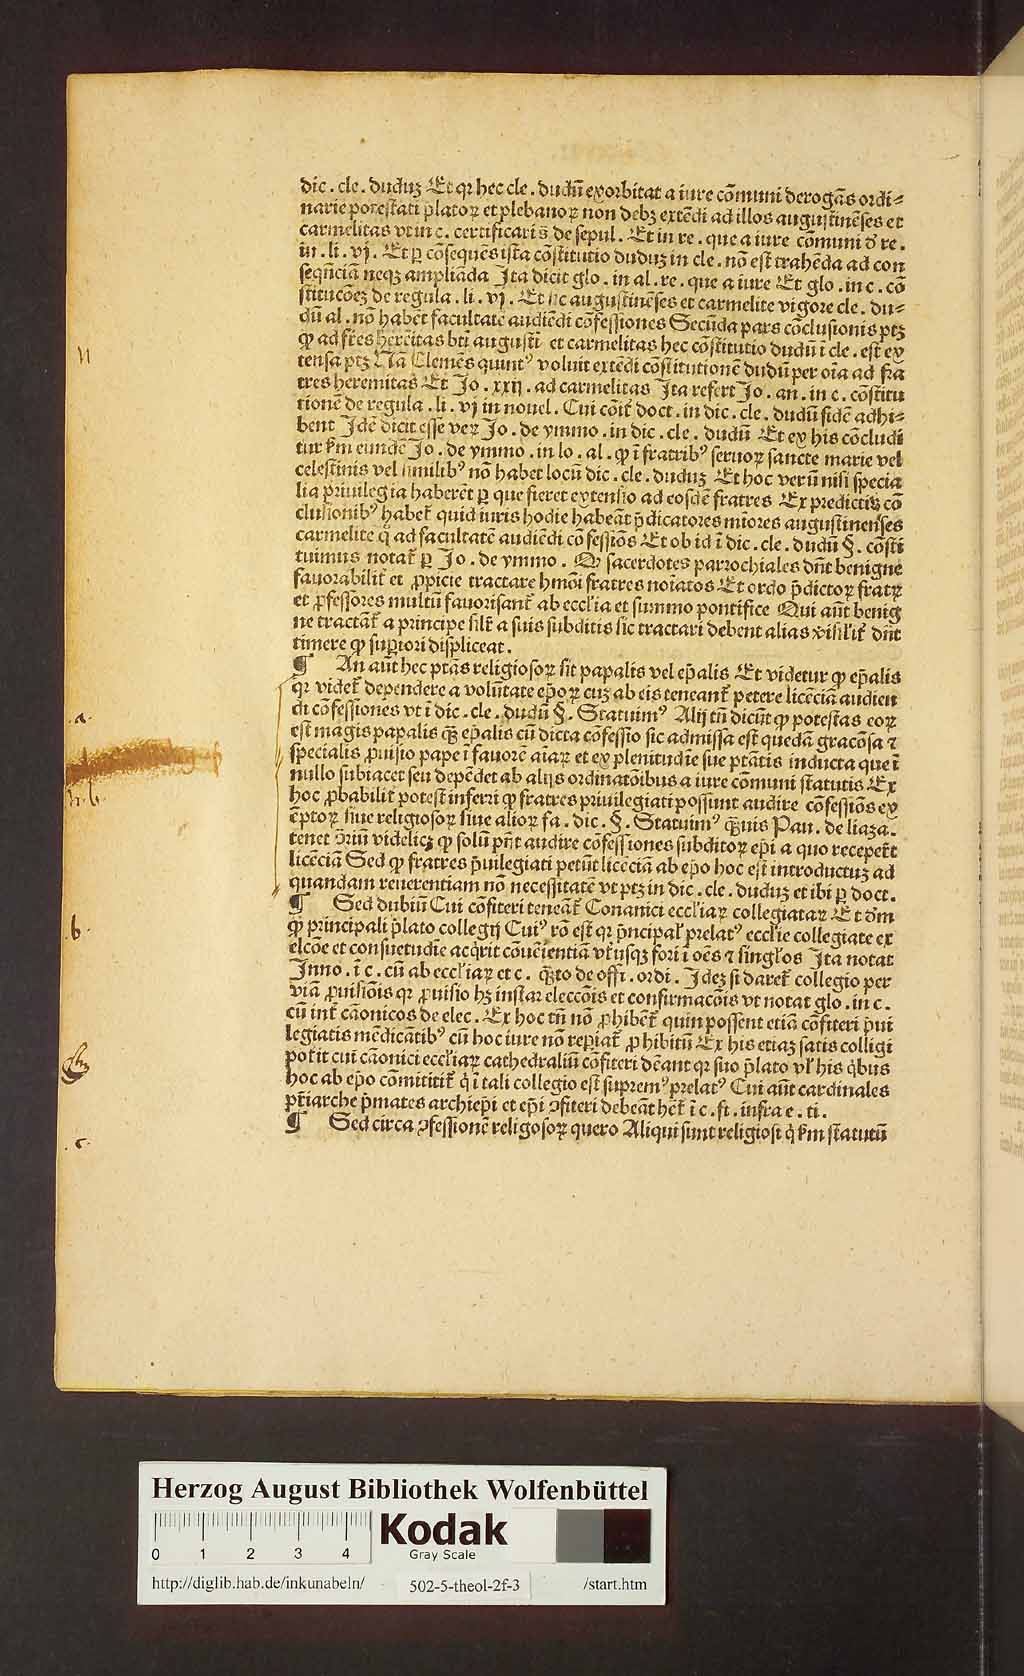 dic . cle . duduꝫ Et qꝛ hec cle . dudū exorbitat a iure cōmuni derogās ordi⸗
narie potestati p̄latoꝝ et plebanoꝝ non debꝫ extēdi ad illos augustinēses et
carmelitas vt in c . certificari s̄ de sepul . Et in re . que a iure cōmuni đ re .
in . li . vj . Et ꝑ cōsequēs ista cōstitutio duduꝫ in cle . nō est trahēda ad con
seqn̄ciā neqꝫ ampliāda Ita dicit glo . in al . re . que a iure Et glo . in c . cō
stitucōeꝫ de regula . li . vj . Et sic augustinēses et carmelite vigore cle . du⸗
dū al . nō habēt facultatē audiēdi cōfessiones Secūda pars cōclusionis ptꝫ
ꝙ ad fr̄es heremitas bti augusti et carmelitas hec cōstitutio dudū ī cle . est ex
tensa ptꝫ Nā Clemēs quintꝰ voluit extēdi cōstitutionē dudū per oīa ad fra
tres heremitas Et Jo . xxij . ad carmelitas Ita refert Jo . an . in c . cōstitu
tionē de regula . li . vj in nouel . Cui cōit̄ doct . in dic . cle . dudū fidē adhi⸗
bent Idē dicit esse veꝝ Jo . de ymmo . in dic . cle . dudū Et ex his cōcludi
tur ẜm eundē Jo . de ymmo . in lo . al . ꝙ ī fratribꝰ seruoꝝ sancte marie vel
celestinis vel similibꝰ nō habet locū dic . cle . duduꝫ Et hoc verū nisi specia
lia priuilegia haberēt ꝑ que fieret extensio ad eosdē fratres Ex predictis cō
clusionibꝰ habet̄ quid iuris hodie habeāt p̄dicatores mīores augustinenses
carmelite q̊ ad facultatē audiēdi cōfessiōs Et ob id ī dic . cle . dudū §. cōsti
tuimus notat̄ ꝑ Jo . de ymmo . Ꝙ sacerdotes parrochiales dn̄t benigne
fauorabilit̄ et ꝓpicie tractare hmōi fratres noīatos Et ordo p̄dictoꝝ fratꝝ
et ꝓfessores multū fauorisant̄ ab eccl'ia et summo pontifice Qui aūt benig
ne tractāt̄ a principe silr̄ a suis subditis sic tractari debent alias dn̄t
timere ꝙ suꝑiori displiceat .
¶ An aūt hec ptās religiosoꝝ sit papalis vel ep̄alis Et videtur ꝙ ep̄alis
qꝛ videt̄ dependere a volūtate ep̄oꝝ cuꝫ ab eis teneant̄ petere licēciā audien
di cōfessiones vt ī dic . cle . dudū §. Statuimꝰ Alij tn̄ dicūt ꝙ potestas eoꝝ
est magis papalis qꝫ̄ ep̄alis cū dicta cōfessio sic admissa est quedā gracōsa ⁊
specialis ꝓuisio pape ī fauorē aīaꝝ et ex plenitudīe sue ptātis inducta que ī
nullo subiacet seu depēdet ab alijs ordinatōibus a iure cōmuni statutis Ex
hoc ꝓbabilit̄ potest inferri ꝙ fratres priuilegiati possunt audire cōfessiōs ex
ēptoꝝ siue religiosoꝝ siue alioꝝ fa . dic . §. Statuimꝰ qꝫ̄uis Pau . de liaza .
tenet ɔ̄riū videlicꝫ ꝙ solū pn̄t audire cōfessiones subditoꝝ ep̄i a quo receperūt
licēciā Sed ꝙ fratres p̄uilegiati petūt licēciā ab ep̄o hoc est introductuꝫ ad
quandam reuerentiam nō necessitatē vt ptꝫ in dic . cle . duduꝫ et ibi ꝑ doct .
¶ Sed dubiū Cui cōfiteri teneāt̄ Conanici eccl'iaꝝ collegiataꝝ Et đm
ꝙ principali p̄lato collegij Cuiꝰ rō est qꝛ p̄ncipal' prelatꝰ eccl'ie collegiate ex
elcōe et consuetudīe acq̄rit cōuēientiā vt̄iusqꝫ fori ī oēs ⁊ singl'os Ita notat
Inno . ī c . cū ab eccl'iaꝝ et c . qꝫ̄to de offi . ordi . Ideꝫ si daret̄ collegio per
viā ꝓuisiōis qꝛ ꝓuisio hꝫ instar eleccōis et confirmacōis vt notat glo . in c .
cū int̄ cānonicos de elec . Ex hoc tn̄ nō ꝓhibēt̄ quin possent etiā cōfiteri p̄ui
legiatis mēdicātibꝰ cū hoc iure nō reꝑiat̄ ꝓhibitū Ex his etiaꝫ satis colligi
pot̄it cui cānonici eccl'iaꝝ cathedraliū cōfiteri dēant qꝛ suo p̄lato vl' his q̇bus
hoc ab ep̄o cōmititit̄ q̇ ī tali collegio est supremꝰ prelatꝰ Cui aūt cardinales
pt̄iarche p̄mates archiep̄i et ep̄i ɔfiteri debeāt hēt̄ ī c . fi . infra e . ti .
¶ Sed circa ɔfessionē religosoꝝ quero Aliqui sunt religiosi q̇ ẜm statutū
.a.
n. b
.b.
.c.
Herzog August Bibliothek Wolfenbüttel
0 1 2 3 4
Kodak
Gray Scale
http://diglib.hab.de/inkunabeln/ 502-5-theol-2f-3 /start.htm